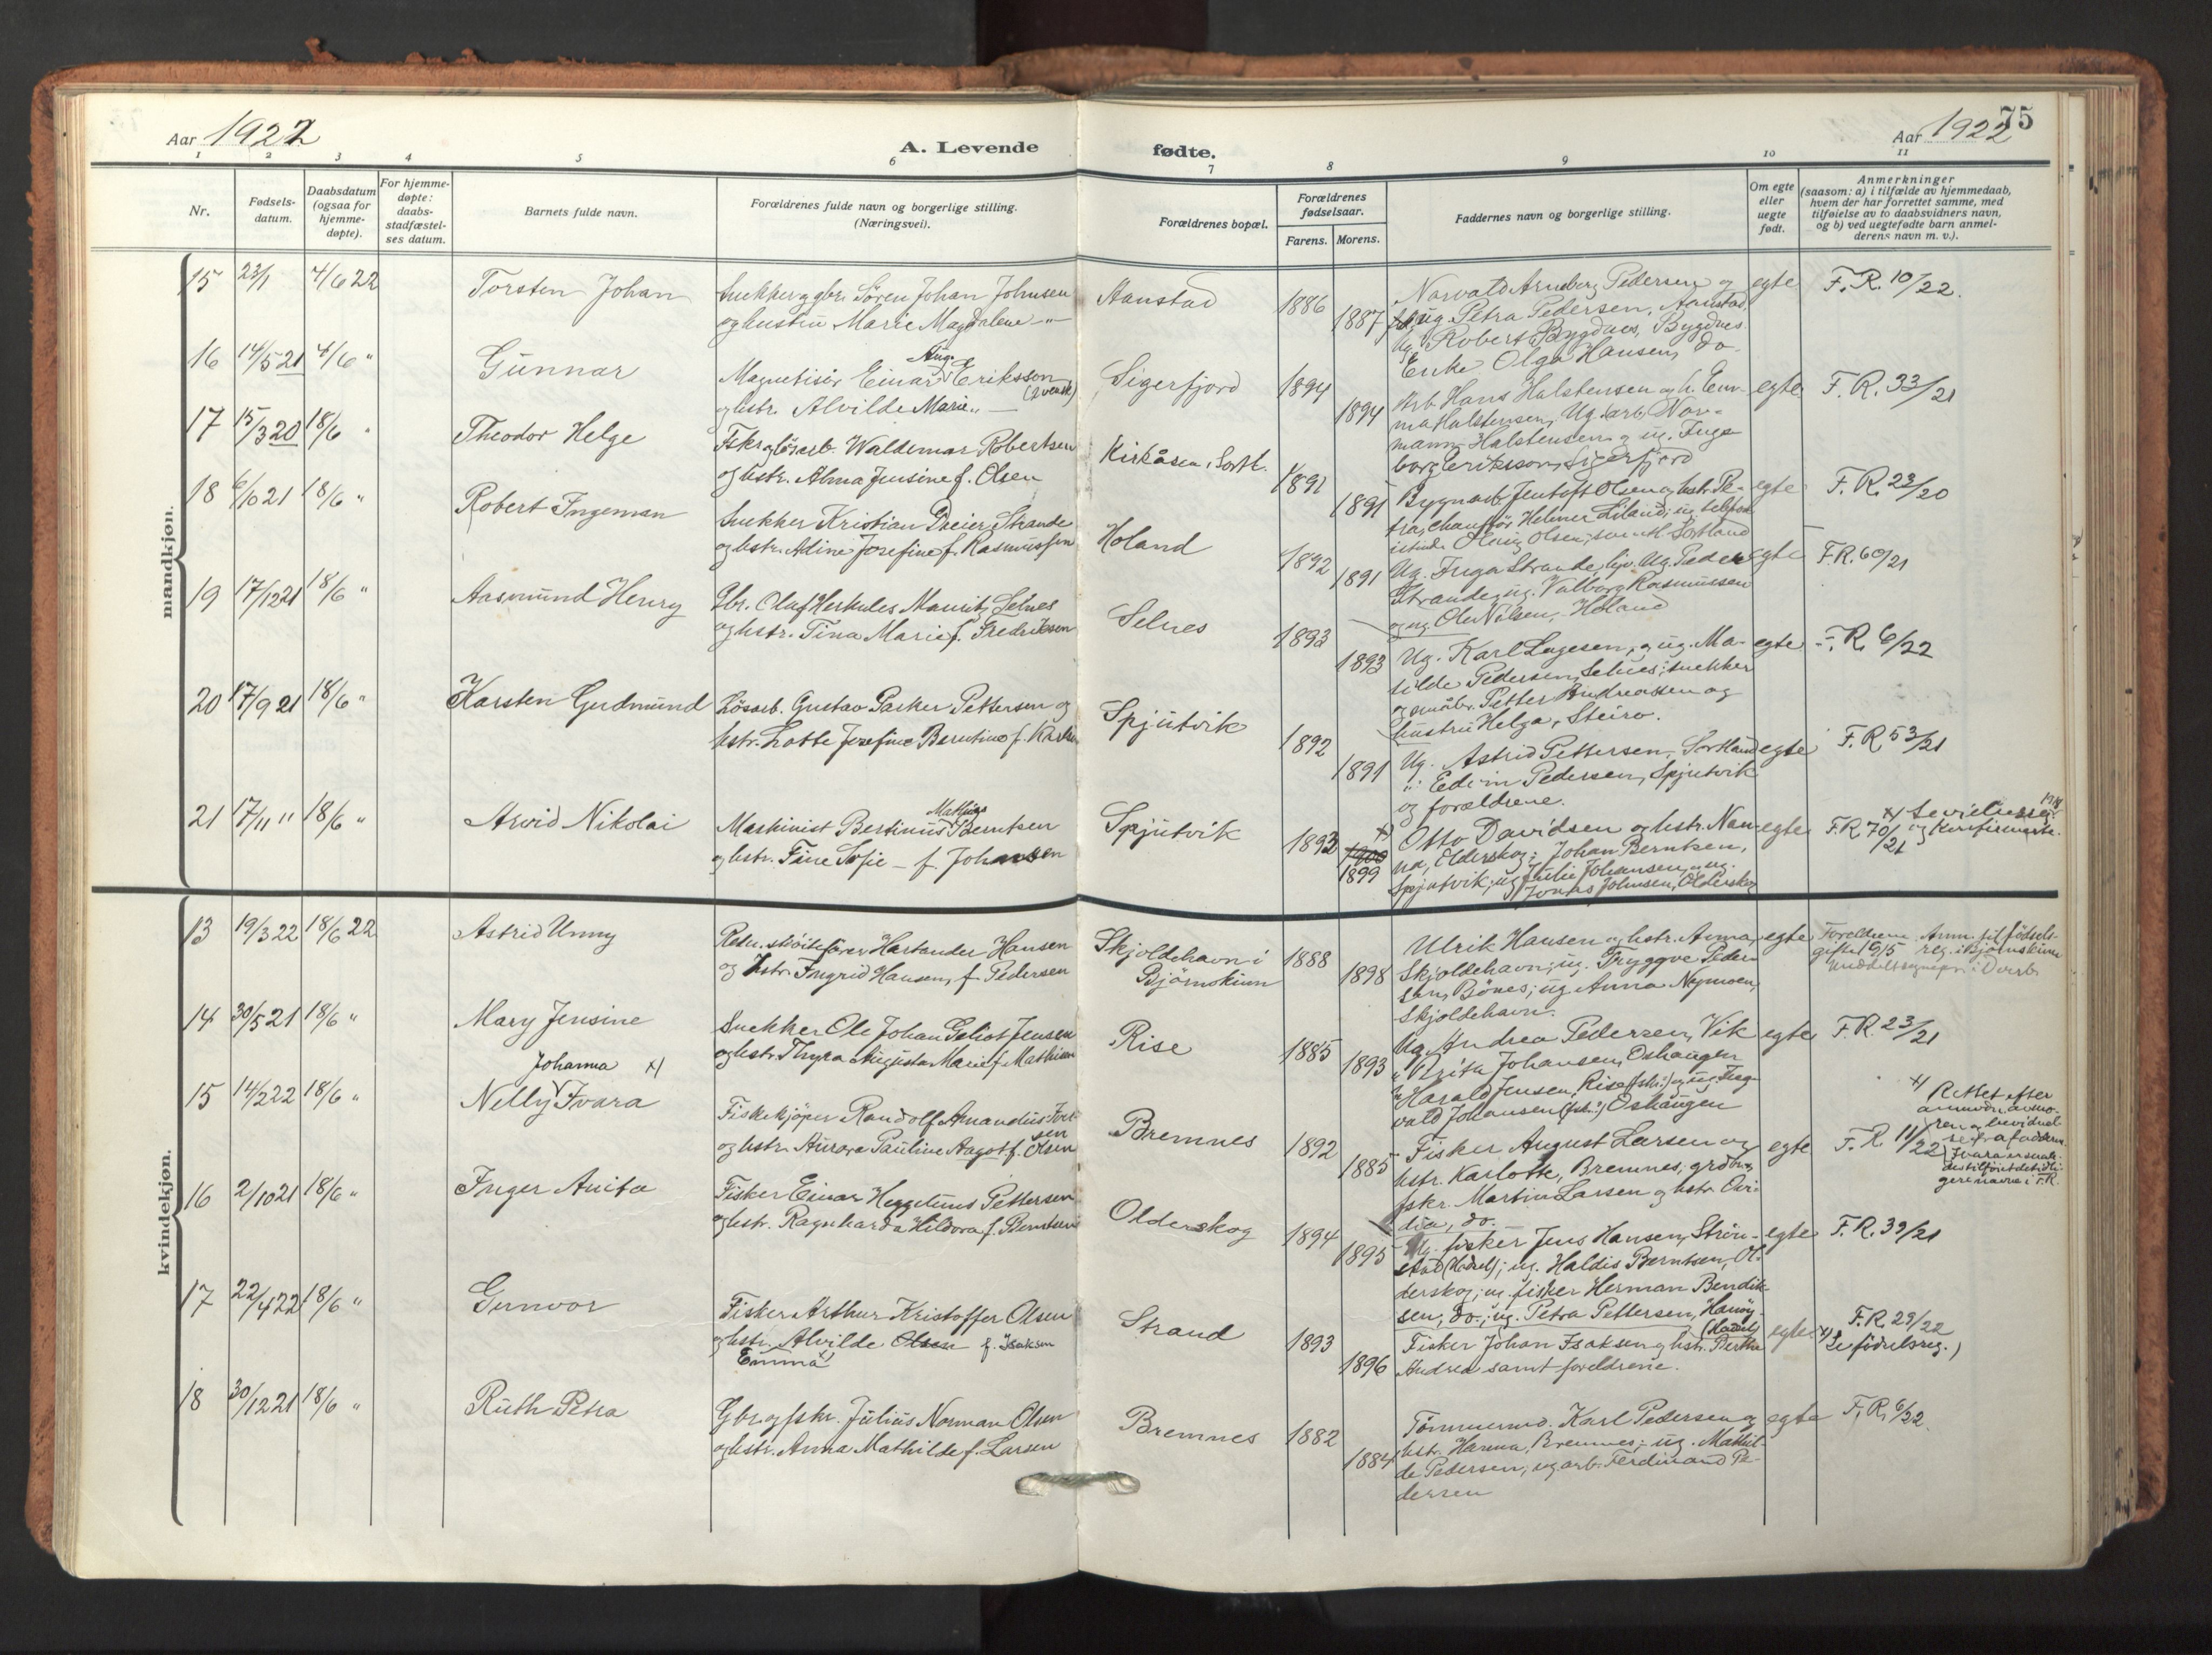 Aar 1922
A. Levende fødte.
Aar 1922
75
1 2 3 4 5 6 7 8 9 10 11
Nr.
Fødsels-
datum.
Daabsdatum
(ogsaa for
hjemme-
døpte).
For hjemme-
døpte:
daabs-
stadfæstel-
ses datum.
Barnets fulde navn.
Forældrenes fulde navn og borgerlige stilling.
(Næringsvei).
Forældrenes bopæl.
Forældrenes
fødselsaar.
Farens. Morens.
Faddernes navn og borgerlige stilling.
Om egte
eller
uegte
født.
Anmerkninger
(saasom: a) i tilfælde av hjemmedaab,
hvem der har forrettet samme, med
tilføielse av to daabsvidners navn,
og b) ved uegtefødte barn anmel-
derens navn m. v.).
mandkjøn.
15 23/1 4/6 22 Torsten Johan
Snekker og gbr. Søren Johan Johnsen
og hustru Marie Magdalene —"—
Aanstad 1886 1887
Norvald Arneberg Pedersen og
ug. Petra Pedersen, Aanstad,
ug. Robert Bygdnes, Bygdnes
Enke Olga Hansen, do.
egte F.R. 10/22.
16 14/5 21 4/6 " Gunnar
Aug.
Magnetisør Einar Eriksson
(svensk)
og hstr. Alvilde Marie —"—
Sigerfjord 1894 1894
Arb. Hans Halstensen og h. Em-
ma Halstensen, Ug. arb. Nor-
mann Halstensen og ug. Inge
borg Eriksson, Sigerfjord
egte F.R. 33/21
17 15/3 20 18/6 " Theodor Helge
Fskr og lösarb. Waldemar Robertsen
og hstr. Alma Jensine f. Olsen
Kirkåsen, Sortl. 1891 1891
Bygnarb. Jentoft Olsen og hstr. Pe-
tra, chauffør Helmer Liland; ug. telefon
istinde Olsen, Sortland
egte F.R. 23/20
18 6/10 21 18/6 " Robert Ingeman
Snekker Kristian Dreier Strande
og hstr. Adine Josefine f. Rasmussen
Holand 1892 1891
Ug. Inga Strande, Ug. Peder
Strande, ug. Valborg Rasmussen
og ug. Ole Nilsen, Holand
egte F.R. 60/21
19 17/12 21 18/6 " Aasmund Henry
Gbr. Olaf Herkules Mauritz Selnes
og hstr. Tina Marie f. Fredriksen
Selnes 1893 1893
Ug. Karl Lagesen, og ug. Ma-
tilde Pedersen, Selnes; snekker
og småbr. Petter Andreassen og
hustru Helga, Steiro.
egte F.R. 6/22
20 17/9 21 18/6 " Karsten Gudmund
Lösarb. Gustav Parker Pettersen og
hstr. Lotte Josefine Berntine f. Karls
Spjutvik 1892 1891
Ug. Astrid Pettersen, Sortland
" Edvin Pedersen, Spjutvik
og forældrene.
egte F.R. 53/21
21 17/11 " 18/6 " Arvid Nikolai
Mathias
Maskinist Bertinus Berntsen
og hstr. Tine Sofie — f. Johansen
Spjutvik 1893 x) 1900 1899
Otto Davidsen og hstr. Nan-
na, Olderskog; Johan Berntsen,
Spjutvik; ug. Julie Johansen, ug.
Jonas Johnsen, Olderskog
egte F.R. 70/21
kvindekjøn.
13 19/3 22 18/6 22 Astrid Unny
Redn. skøiteforer Hartander Hansen
og hstr. Ingrid Hansen, f. Pedersen
Skjoldehavn i
Bjørnskinn 1888 1898
Ulrik Hansen og hstr. Anna,
Skjoldehavn; ug. Tryggve Peder-
sen, Bjönes; ug. Anna Nymoen,
Skjoldehavn.
egte Foreldrene Anm. til fødsels-
reg. i Bjørnskinn
14 30/5 21 18/6 " Mary Jensine
Snekker Ole Johan Jensen
og hstr. Thyra Augusta Marie f. Mathisen
Rise 1885 1893
Ug. Andrea Pedersen, Vik
" Agita Johansen, Oshaugen
" Harald Jensen, Rise (fskr.) og ug. Ing-
vald Johansen (fsk.) Oshaugen
egte F.R. 23/21
Johanna x)
15 14/2 22 18/6 " Nelly Ivara
Fiskekjöper Randolf Amandus Ivar
sen
og hstr. Aurora Pauline Aagot f. Olsen
Bremnes 1892 1885
Fisker August Larsen og
hstr. Karlotte, Bremnes; grdbr.
fskr. Martin Larsen og hstr. Ovi-
dia, do.
egte F.R. 11/22
x) Rettet efter
16 2/10 21 18/6 " Inger Anita
Fisker Einar Heggelunds Pettersen
og hstr. Ragnharda Hildora f. Berntsen
Olderskog 1894 1895
Ug. fisker Jens Hansen, Strön-
stad (Hadsel); ug. Haldis Berntsen, Ol-
derskog; ug. fisker Herman Bendik-
sen, do.; ug. Petra Pettersen, Hanøy
(Hadsel)
egte F.R. 39/21
17 22/4 22 18/6 " Gunvor
Fisker Arthur Kristoffer Olsen
og hstr. Alvilde Olsen f. Isaksen
Emma x)
Strand 1893 1896
Fisker Johan Isaksen og hstr. Berthe
Andrea samt foreldrene.
egte F.R. 29/22
x) Se fødselsreg.)
18 30/12 21 18/6 " Ruth Petra
Gbr. og fskr. Julius Norman Olsen
og hstr. Anna Mathilde f. Larsen
Bremnes 1882 1884
Tömmermd. Karl Pedersen og
hstr. Harma, Bremnes; ug. Mathil-
de Pedersen; ug. arb. Ferdinand Pe-
dersen
egte F.R. 6/22